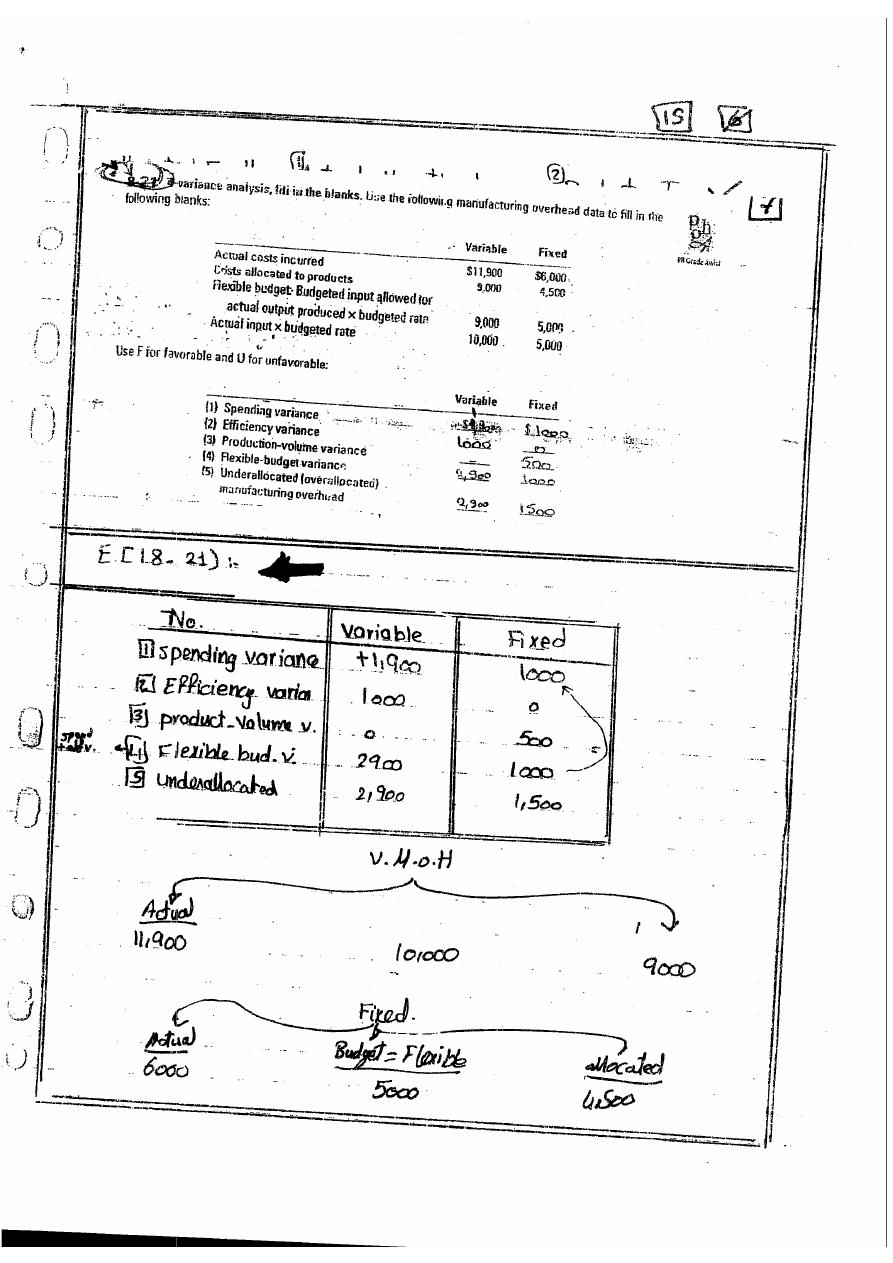 15 6
(1) (2)
8-21 variance analysis, fill in the blanks. Use the following manufacturing overhead data to fill in the
following blanks:
7
PH Grade Assist
Variable Fixed
Actual costs incurred $11,900 $6,000
Costs allocated to products 9,000 4,500
Flexible budget: Budgeted input allowed for
actual output produced × budgeted rate 9,000 5,000
Actual input × budgeted rate 10,000 5,000
Use F for favorable and U for unfavorable:
Variable Fixed
(1) Spending variance $1000
(2) Efficiency variance 1000 0
(3) Production-volume variance — 500
(4) Flexible-budget variance 2,900 1000
(5) Underallocated (overallocated)
manufacturing overhead 2,900 1500
E [18-21) :-
No. Variable Fixed
1 spending variane +1,900 1000
2 Efficiency varia 1000 0
3 product-volume v. 0 500
4 Flexible bud. v. 2900 1000
5 underallocated 2,900 1,500
V.M.O.H
Actual
11,900 10,000 9000
Fixed.
Actual Budget = Flexible allocated
6000 5000 4,500